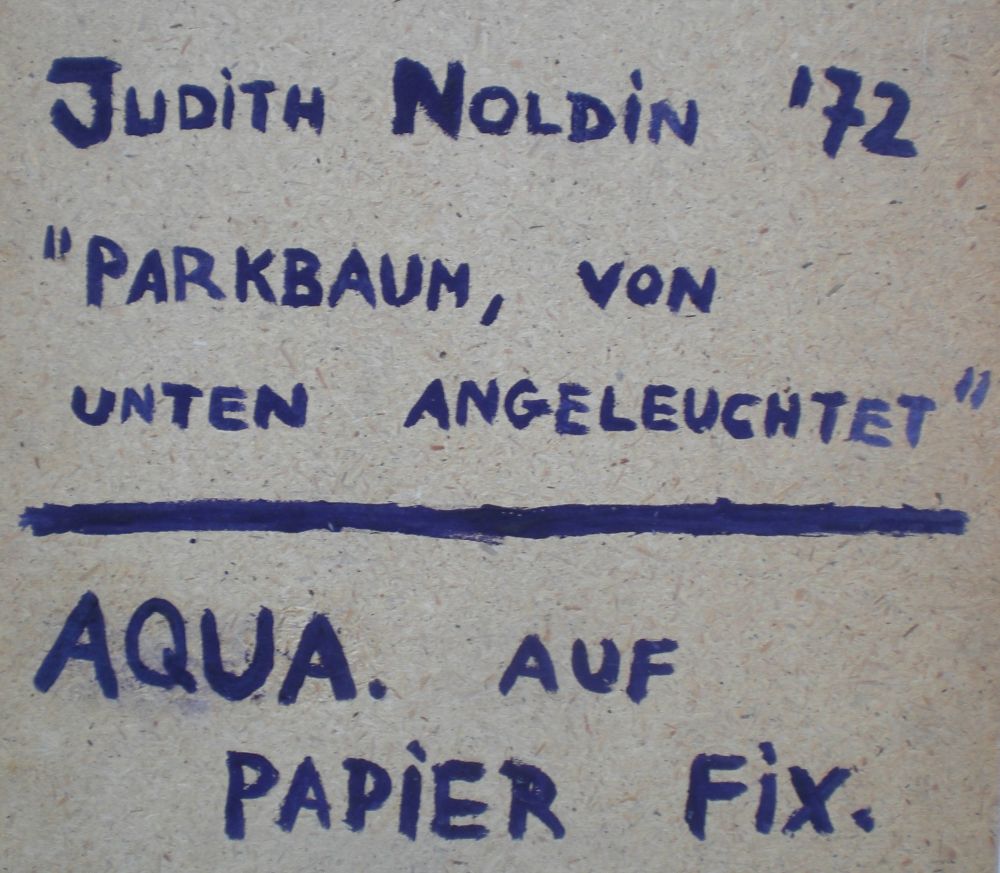 JUDiTH NOLDiN '72
"PARKBAUM, VON
UNTEN ANGELEUCHTET"
AQUA. AUF
PAPiER FiX.